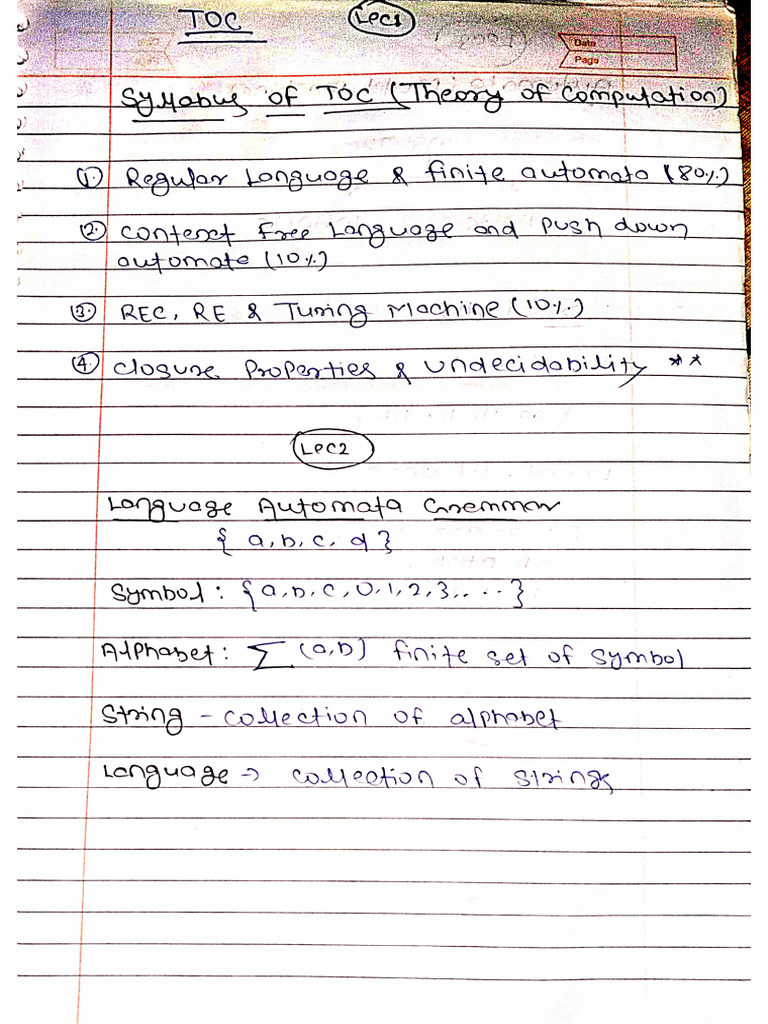 TOC Lec1
Date
Page
Syllabus of TOC (Theory of Computation)
① Regular Language & finite automata (80%)
② Context Free Language and Push down
automate (10%)
③ REC, RE & Turing Machine (10%)
④ Closure Properties & Undecidability **
Lec2
Language Automata Gremmar
{ a, b, c, d }
Symbol : { a, b, c, 0, 1, 2, 3, . . . }
Alphabet : Σ (a,b) finite set of symbol
String - collection of alphabet
Language → collection of strings